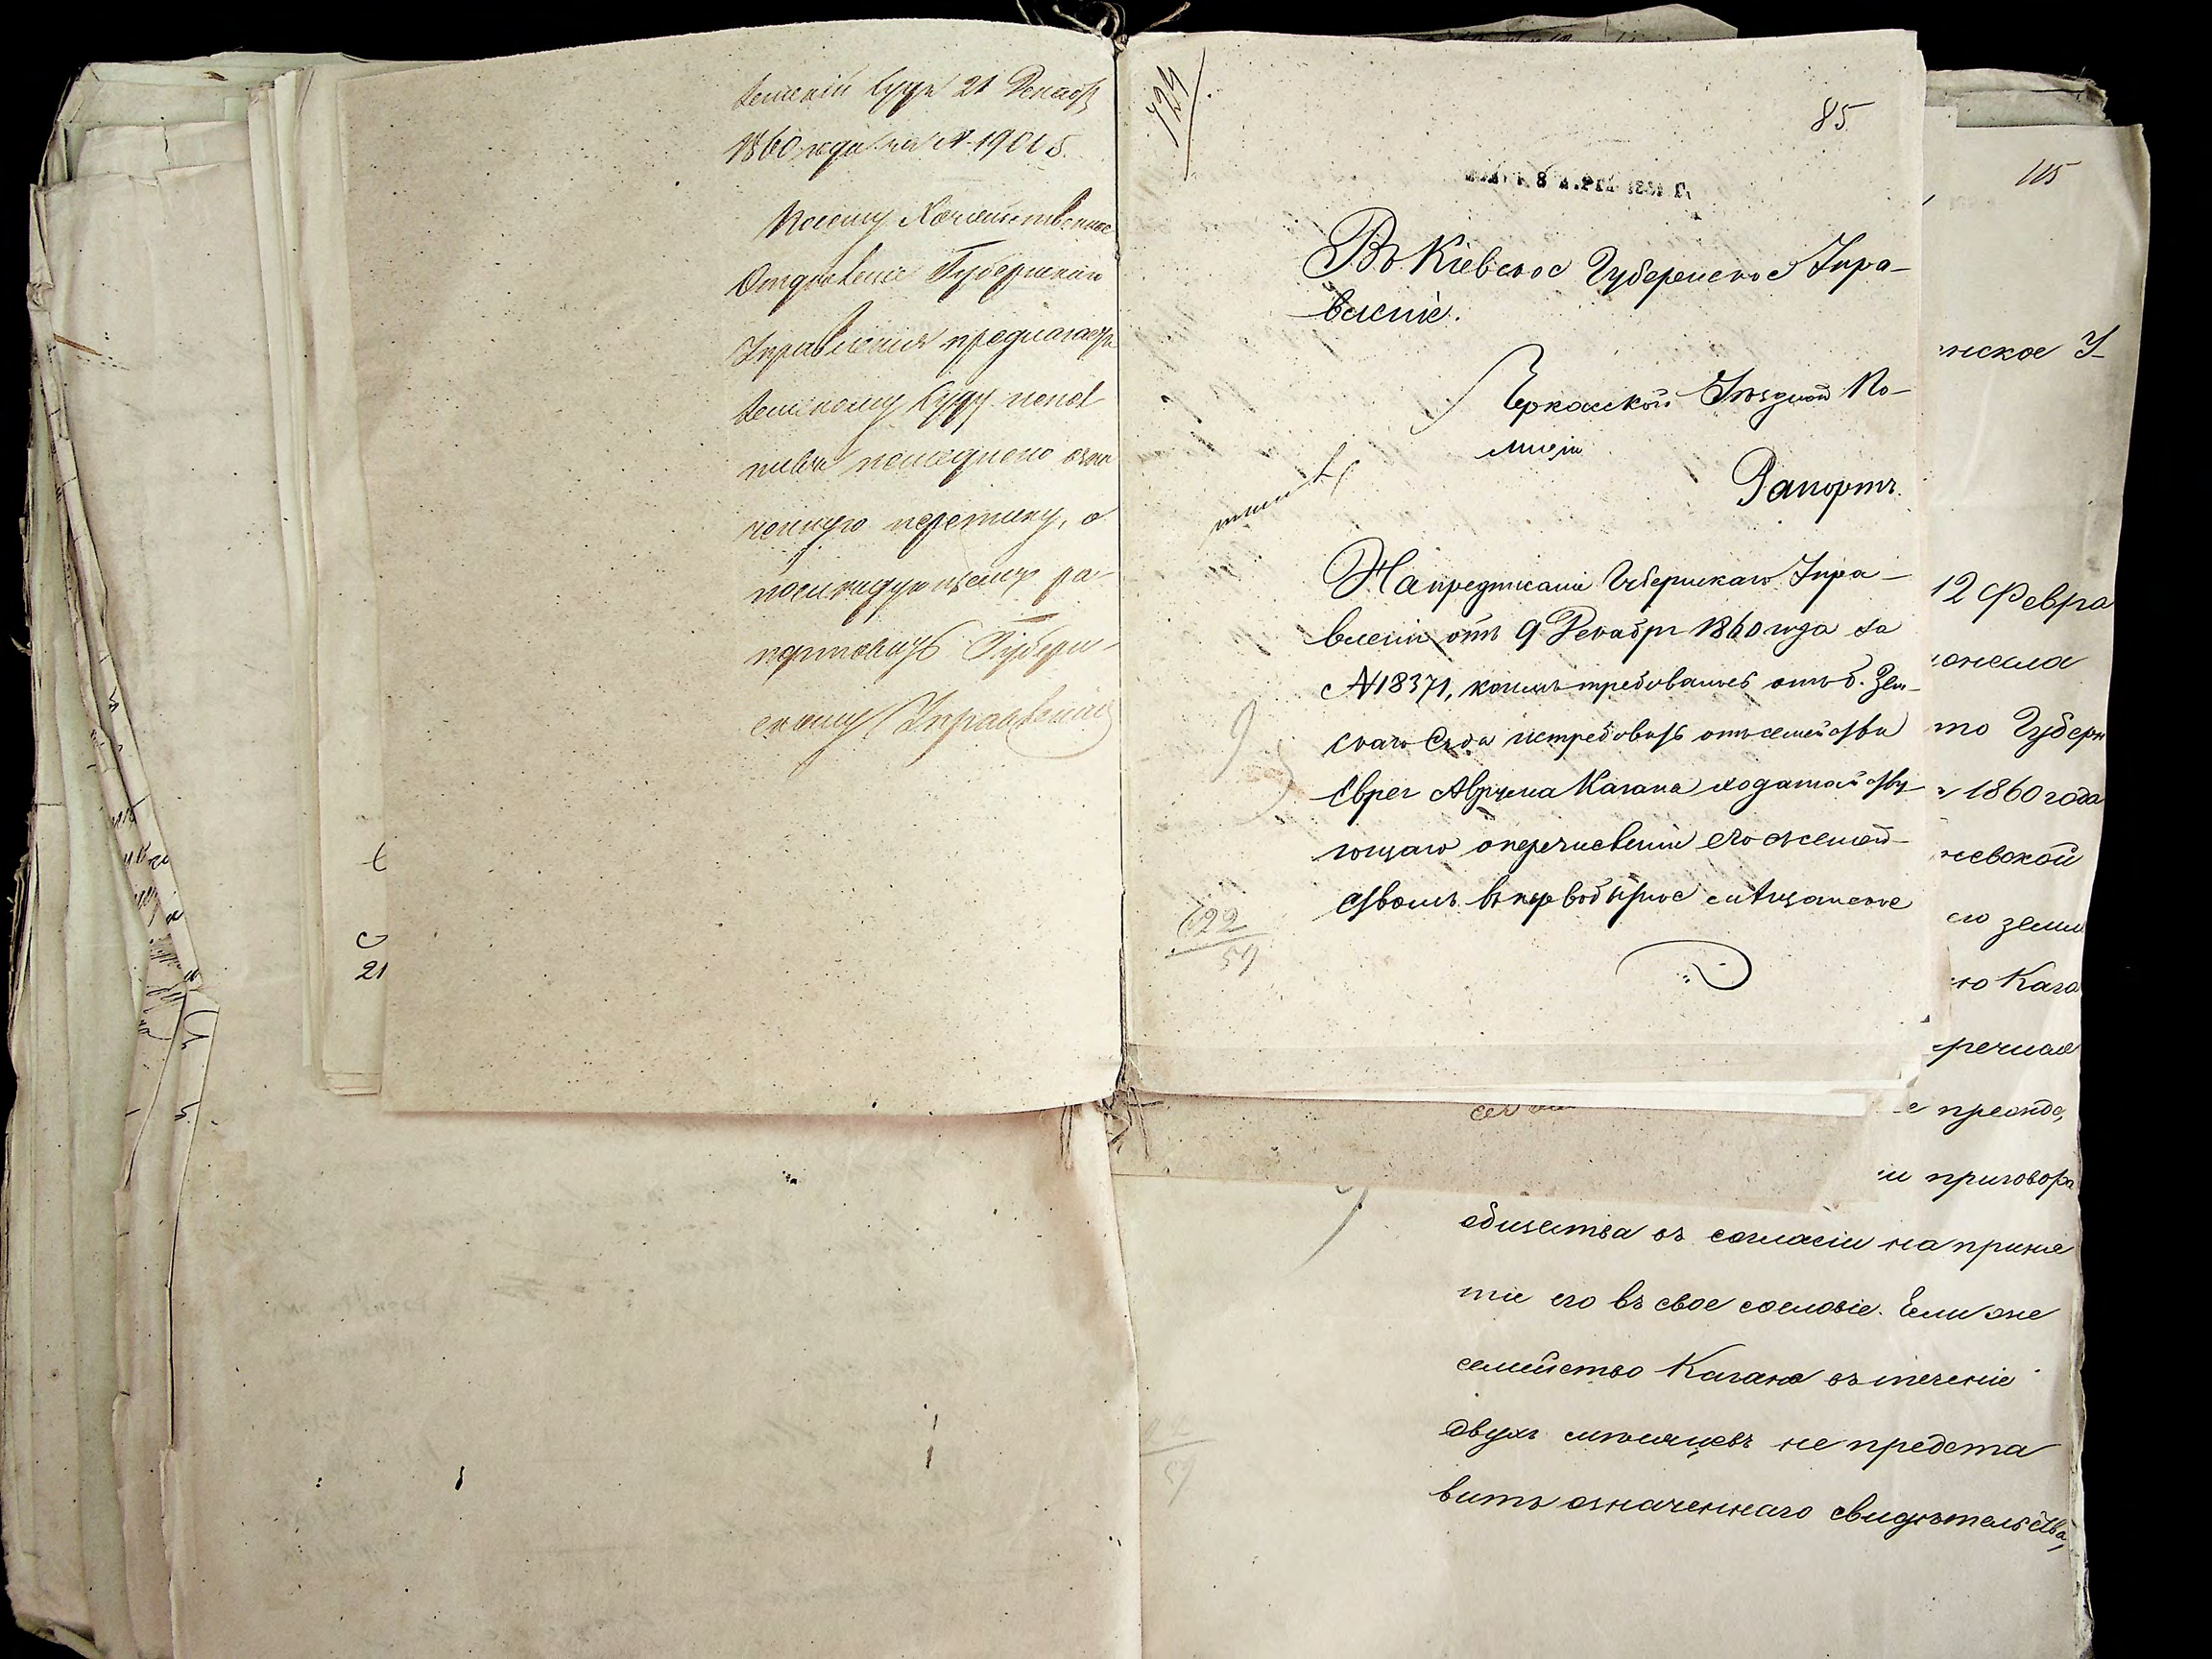 Земскій Судъ 21 Декабр
1860 года за № 19015.
Посему Хозяйственное
Отдѣленіе Губернскаго
Управленія предлагаетъ
Земскому Суду
немедленно озна
ченную переписку, о
послѣдующемъ ра-
портовать Губерн-
скому Управленію
21
124
85
Въ Кіевское Губернское Упра-
вленіе.
Черкасской Уѣздной По-
лиціи
Рапортъ.
На предписаніе Губернскаго Упра-
вленія отъ 9 Декабря 1860 года за
№ 18371, коимъ требовалось отъ б. Зем-
скаго Суда истребовать отъ семейства
Еврея Аврума Кагана ходатайству-
ющаго о перечисленіи его съ семей-
ствомъ въ первобытное мѣщанское
622
57
115
нское У
12 Февра
то Губерн
1860 года
невской
ею земли
ю Кага
е преж
и приговора
общества въ согласіи на приня
тіе его въ свое сословіе. Если же
семейство Кагана въ теченіе
двухъ мѣсяцевъ не предста
витъ означеннаго свидѣтельства,